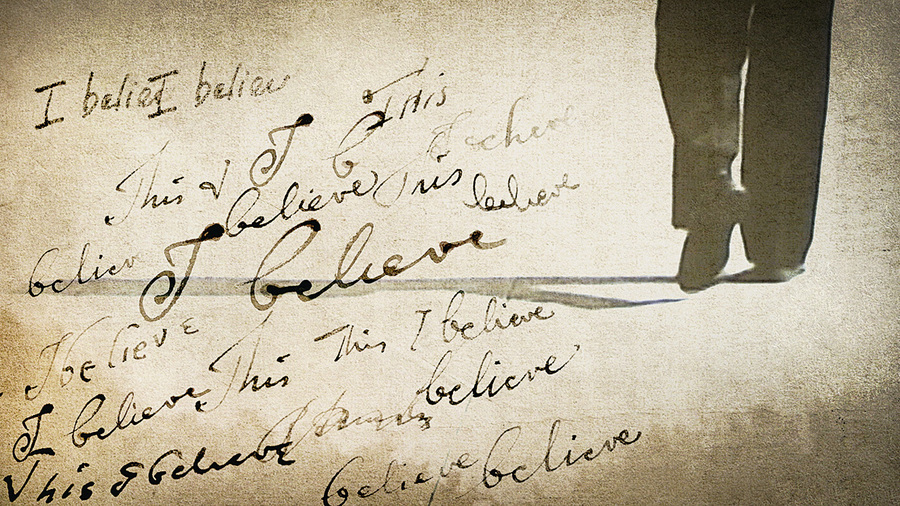 I belie I believ
This
This & I b
believe
I believe This
believe
believ
I believe
I believe
This This I believe
I believe This
believe
This I believe
believe believe